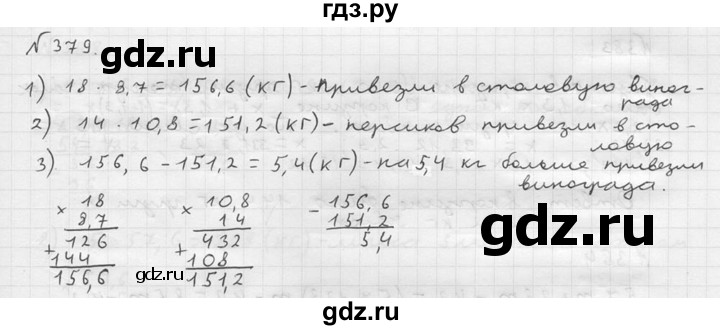 гдз.ру
№379.
1) 18 · 8,7 = 156,6 (кг) - привезли в столовую виног-
рада
2) 14 · 10,8 = 151,2 (кг) - персиков привезли в сто-
ловую
3) 156,6 - 151,2 = 5,4 (кг) - на 5,4 кг больше привезли
винограда.
× 18
8,7
+ 126
144
156,6
× 10,8
14
+ 432
108
151,2
- 156,6
151,2
5,4
gdz.ru
gdz.ru
gdz.ru
gdz.ru